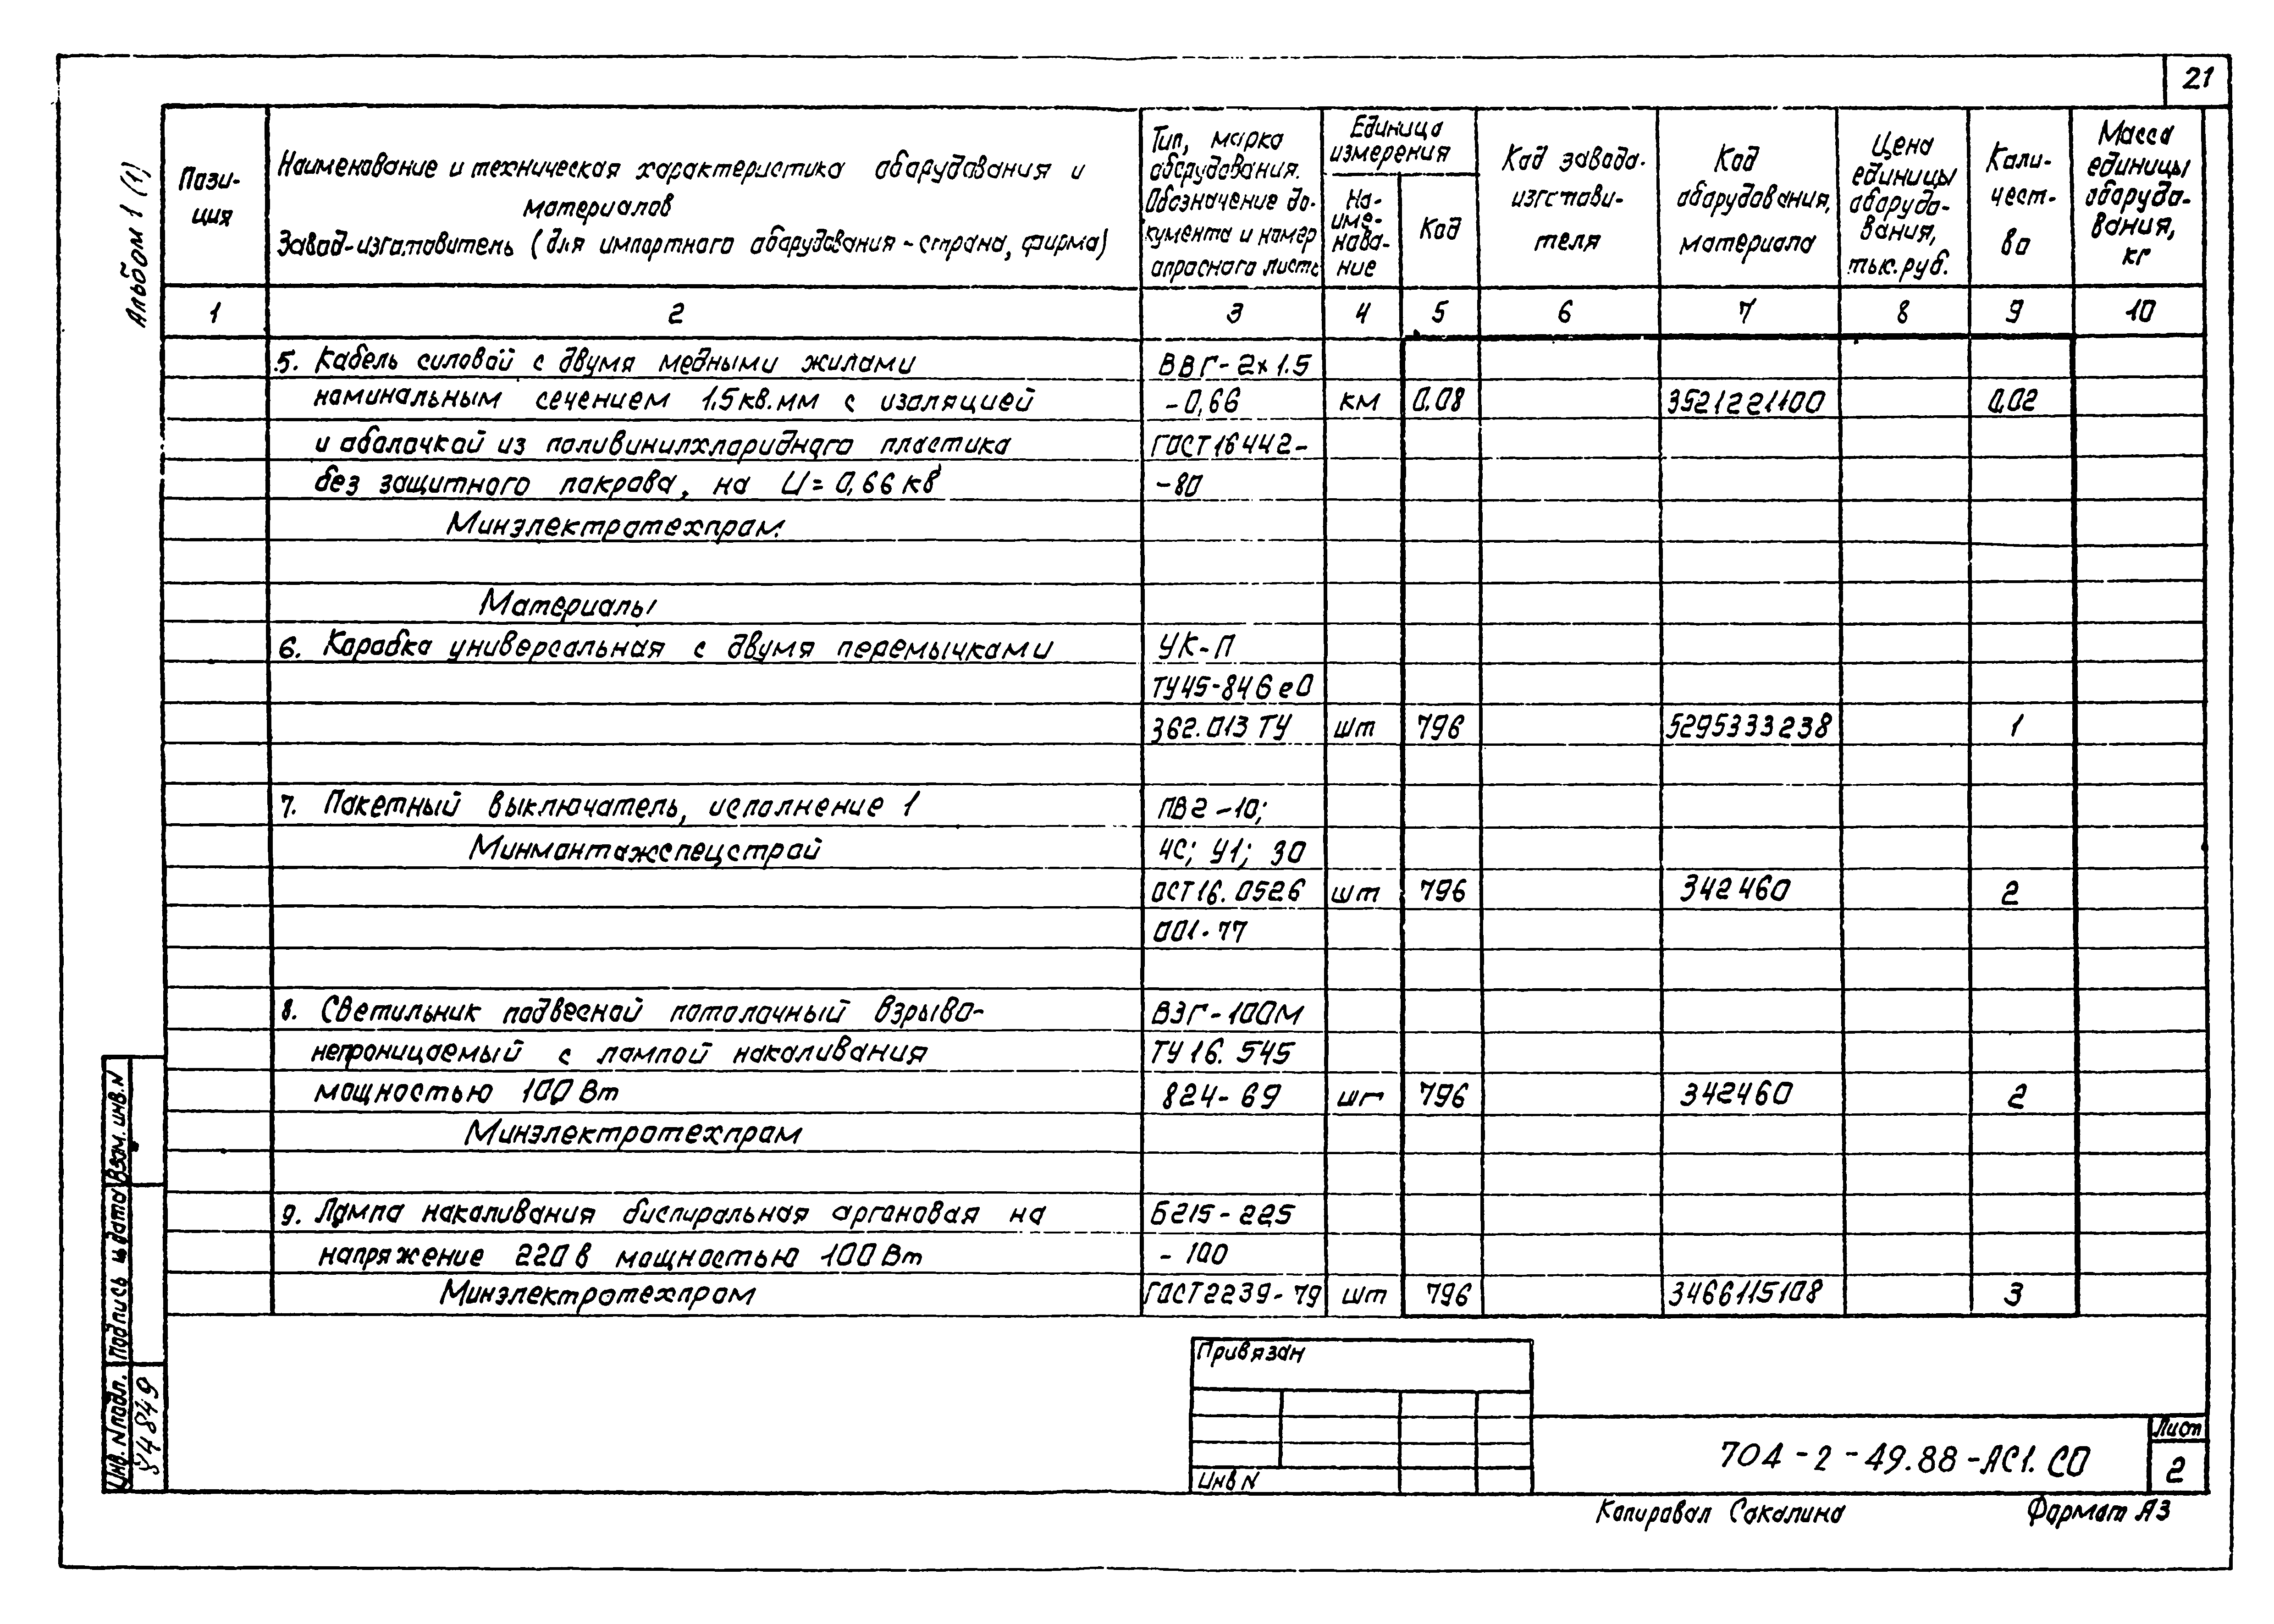 21
Альбом 1 (1)
Пози-
ция
Наименование и техническая характеристика оборудования и
материалов
Завод-изготовитель (для импортного оборудования - страна, фирма)
Тип, марка
оборудования.
Обозначение до-
кумента и номер
опросного листа
Единица
измерения
На-
име-
нова-
ние
Код
Код завода-
изготови-
теля
Код
оборудования,
материала
Цена
единицы
оборудо-
вания,
тыс.руб.
Коли-
чест-
во
Масса
единицы
оборудо-
вания,
кг
1 2 3 4 5 6 7 8 9 10
5. Кабель силовой с двумя медными жилами ВВГ-2х1.5
номинальным сечением 1,5кв.мм с изоляцией -0,66 км 0.08 3521221100 0,02
и оболочкой из поливинилхлоридного пластика ГОСТ16442-
без защитного покрова, на U=0,66кв -80
Минэлектротехпром
Материалы
6. Коробка универсальная с двумя перемычками УК-П
ТУ45-846е0
362.013 ТУ шт 796 5295333238 1
7. Пакетный выключатель, исполнение 1 ПВ2-10;
Минмонтажспецстрой ЧС; У1; 30
ОСТ16.0526 шт 796 342460 2
001-77
8. Светильник подвесной потолочный взрыво- ВЗГ-100М
непроницаемый с лампой накаливания ТУ16.545
мощностью 100Вт 824-69 шт 796 342460 2
Минэлектротехпром
9. Лампа накаливания биспиральная аргоновая на Б215-225
напряжение 220в мощностью 100Вт -100
Минэлектротехпром ГОСТ2239-79 шт 796 3466115108 3
Взам. инв.N
Подпись и дата
Инв. Nподл.
Привязан
Инв N
704-2-49.88-АС1.СО
Лист
2
Копировал Сокалина
Формат А3